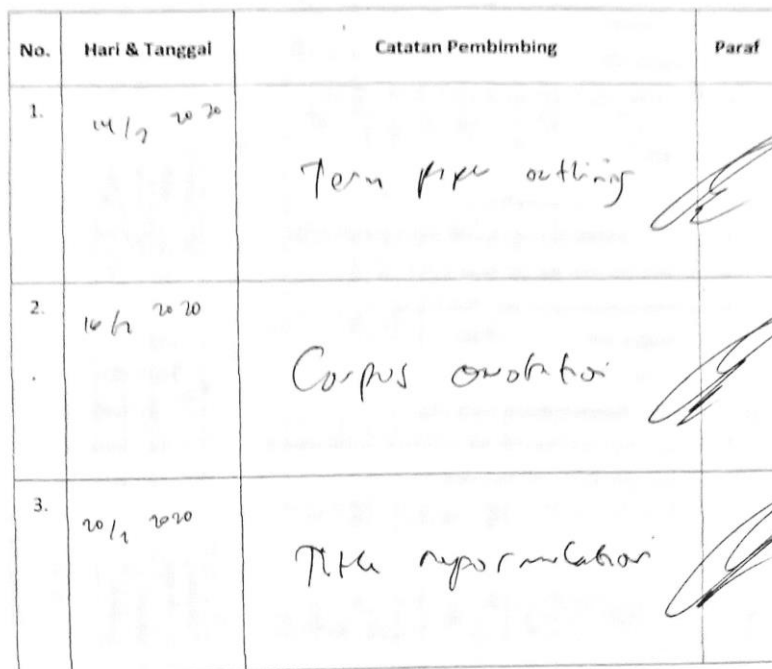 No. Hari & Tanggal Catatan Pembimbing Paraf
1. 14/2 2020 Term paper outlining
2. 16/2 2020 Corpus annotation
3. 20/2 2020 Title reformulation